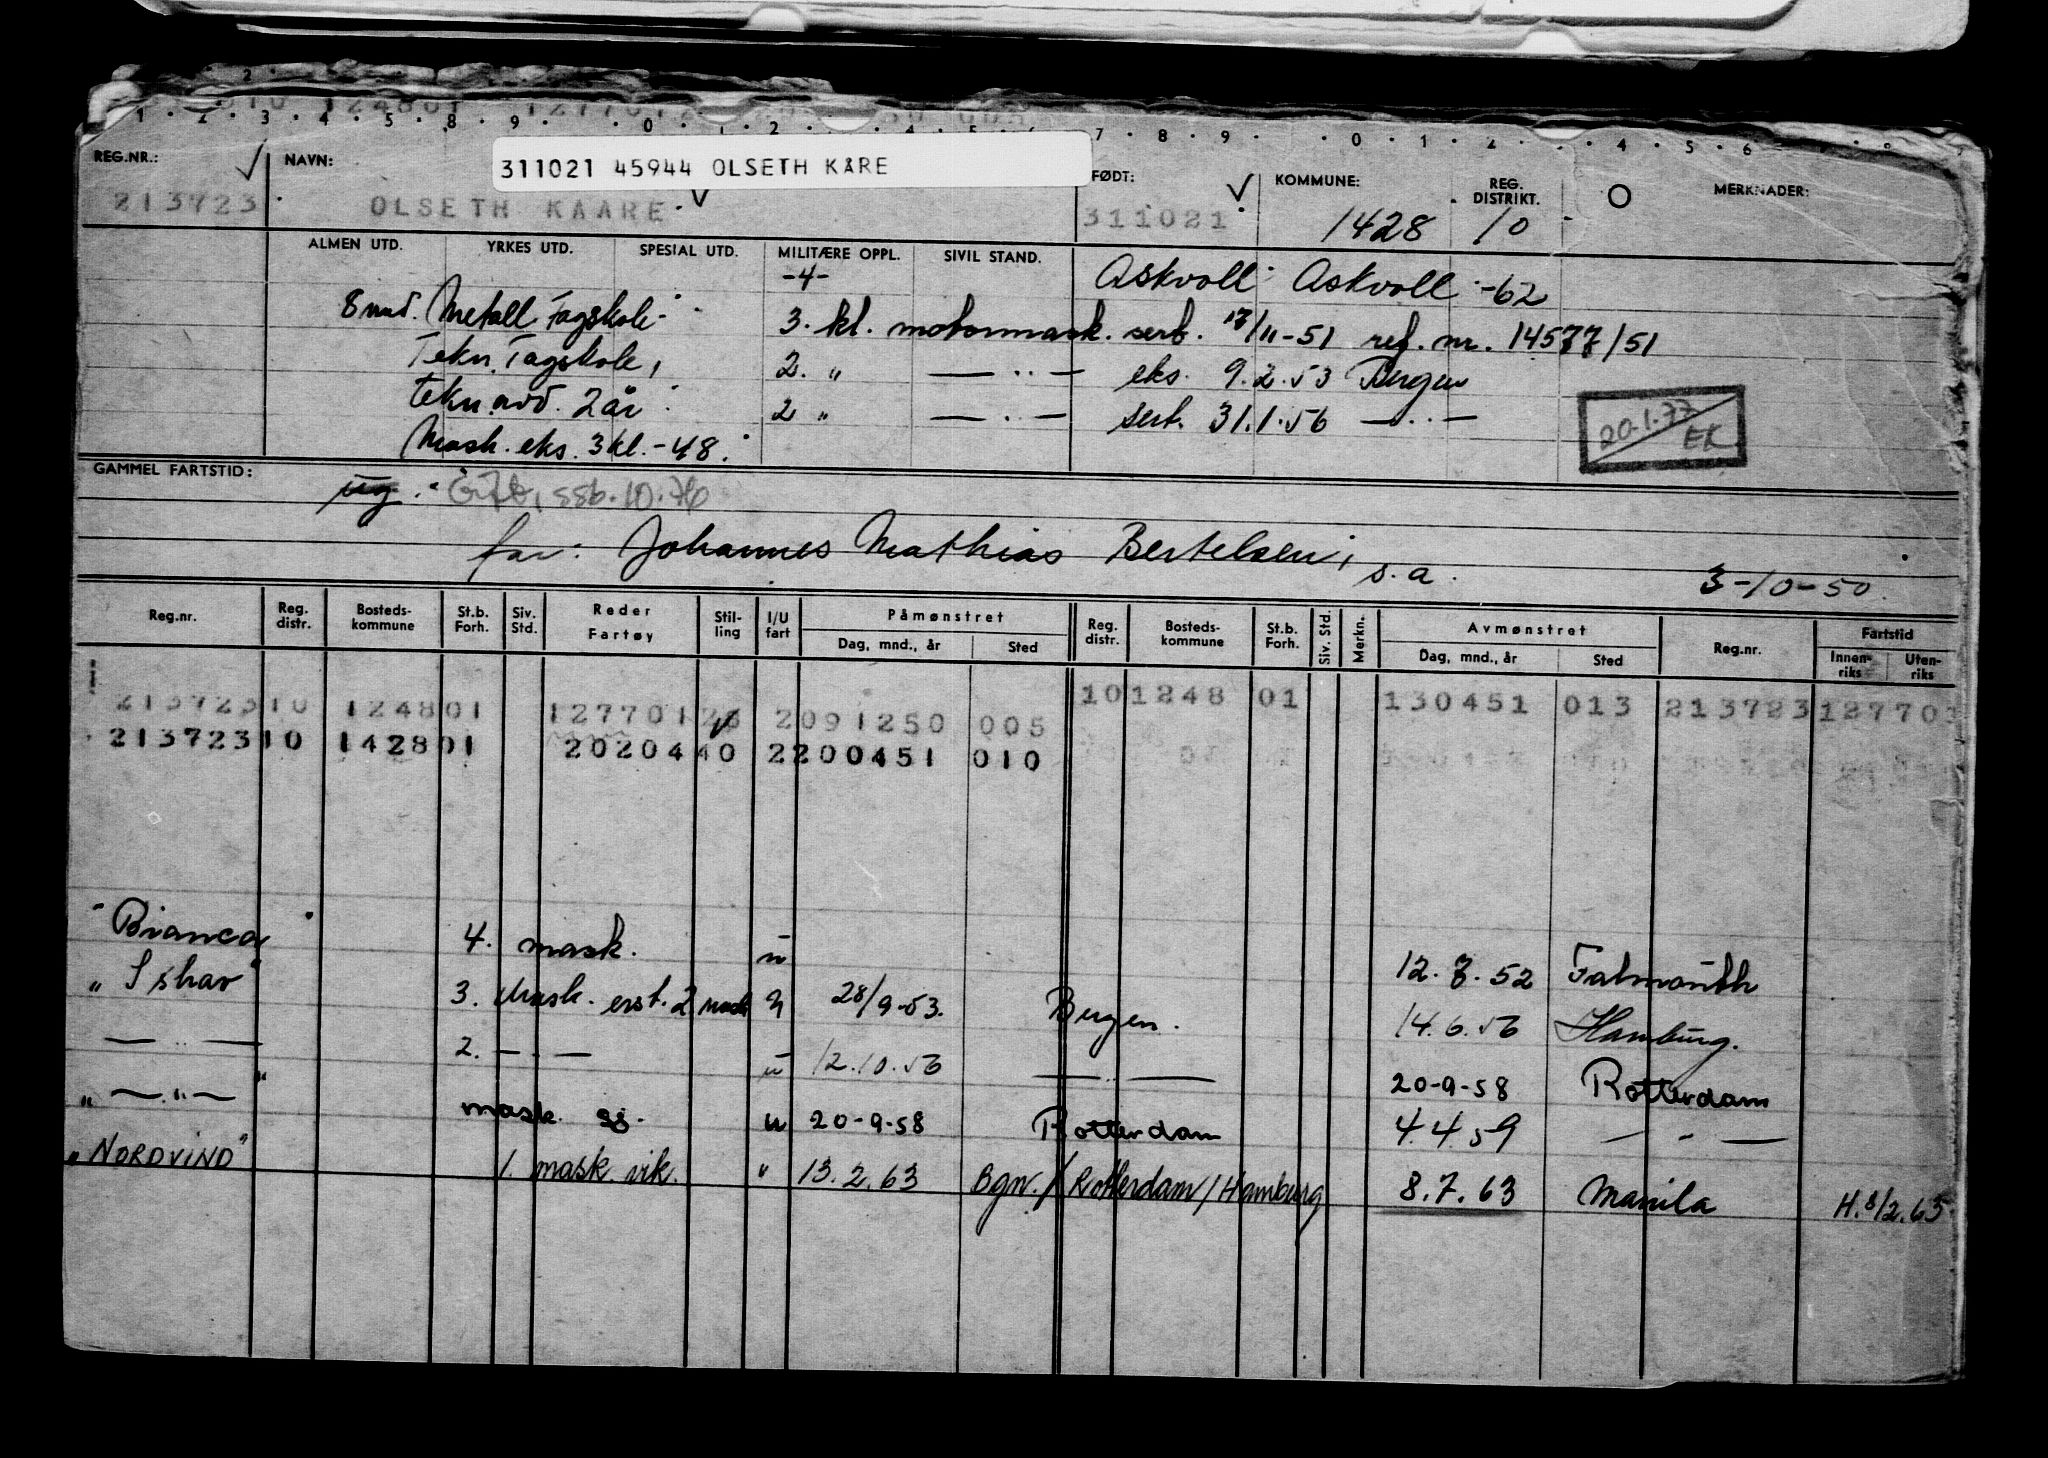 1 . 2 . 3 . 4 . 5 . 8 . 9 . 0 . 1 . 2 . 4 . 5 . 7 . 8 . 9 . 0 . 1 . 2 . 4 . 5 . 6
REG.NR.: NAVN: 311021 45944 OLSETH KÅRE FØDT: KOMMUNE: REG. DISTRIKT. MERKNADER:
213723 OLSETH KAARE 311021 1428 10
ALMEN UTD. YRKES UTD. SPESIAL UTD. MILITÆRE OPPL. SIVIL STAND.
-4- Askvoll Askvoll -62
8 mnd. Metall Fagskole 3. kl. motormask. sert. 17/11-51 ref. nr. 14577/51
Tekn. Fagskole, 2. " — .. — eks. 9.2.53 Bergen
tekn. avd. 2 år 2 " — .. — sert. 31.1.56 — .. —
Mask. eks. 3 kl. -48. 20-1-77 EK
GAMMEL FARTSTID:
ug. ssb. 10.76
far: Johannes Mathias Bertelsen, s.a. 3-10-50.
Reg.nr. Reg. distr. Bosteds-kommune St.b. Forh. Siv. Std. Reder Fartøy Stil-ling I/U fart Påmønstret Dag, mnd., år Sted Reg. distr. Bosteds-kommune St.b. Forh. Siv. Std. Merkn. Avmønstret Dag, mnd., år Sted Reg.nr. Fartstid Innen-riks Uten-riks
21372310 124801 127701 2091250 005 101248 01 130451 013 213723 12770
21372310 142801 2020440 2200451 010
"Bianca" 4. mask. u 12.7.52 Falmouth
"Ishav" 3. Mask. erst. 2 mask u 28/9-53. Bergen. 14.6.56 Hamburg.
— .. — 2. — . — u 12.10.56 — .. — 20-9-58 Rotterdam
" — . " — " mask. sj. u 20-9-58 Rotterdam 4.4.59 — " —
"NORDVIND" 1. mask. vik. " 13.2.63 Bgn./Rotterdam/Hamburg 8.7.63 Manila H.8/2.65